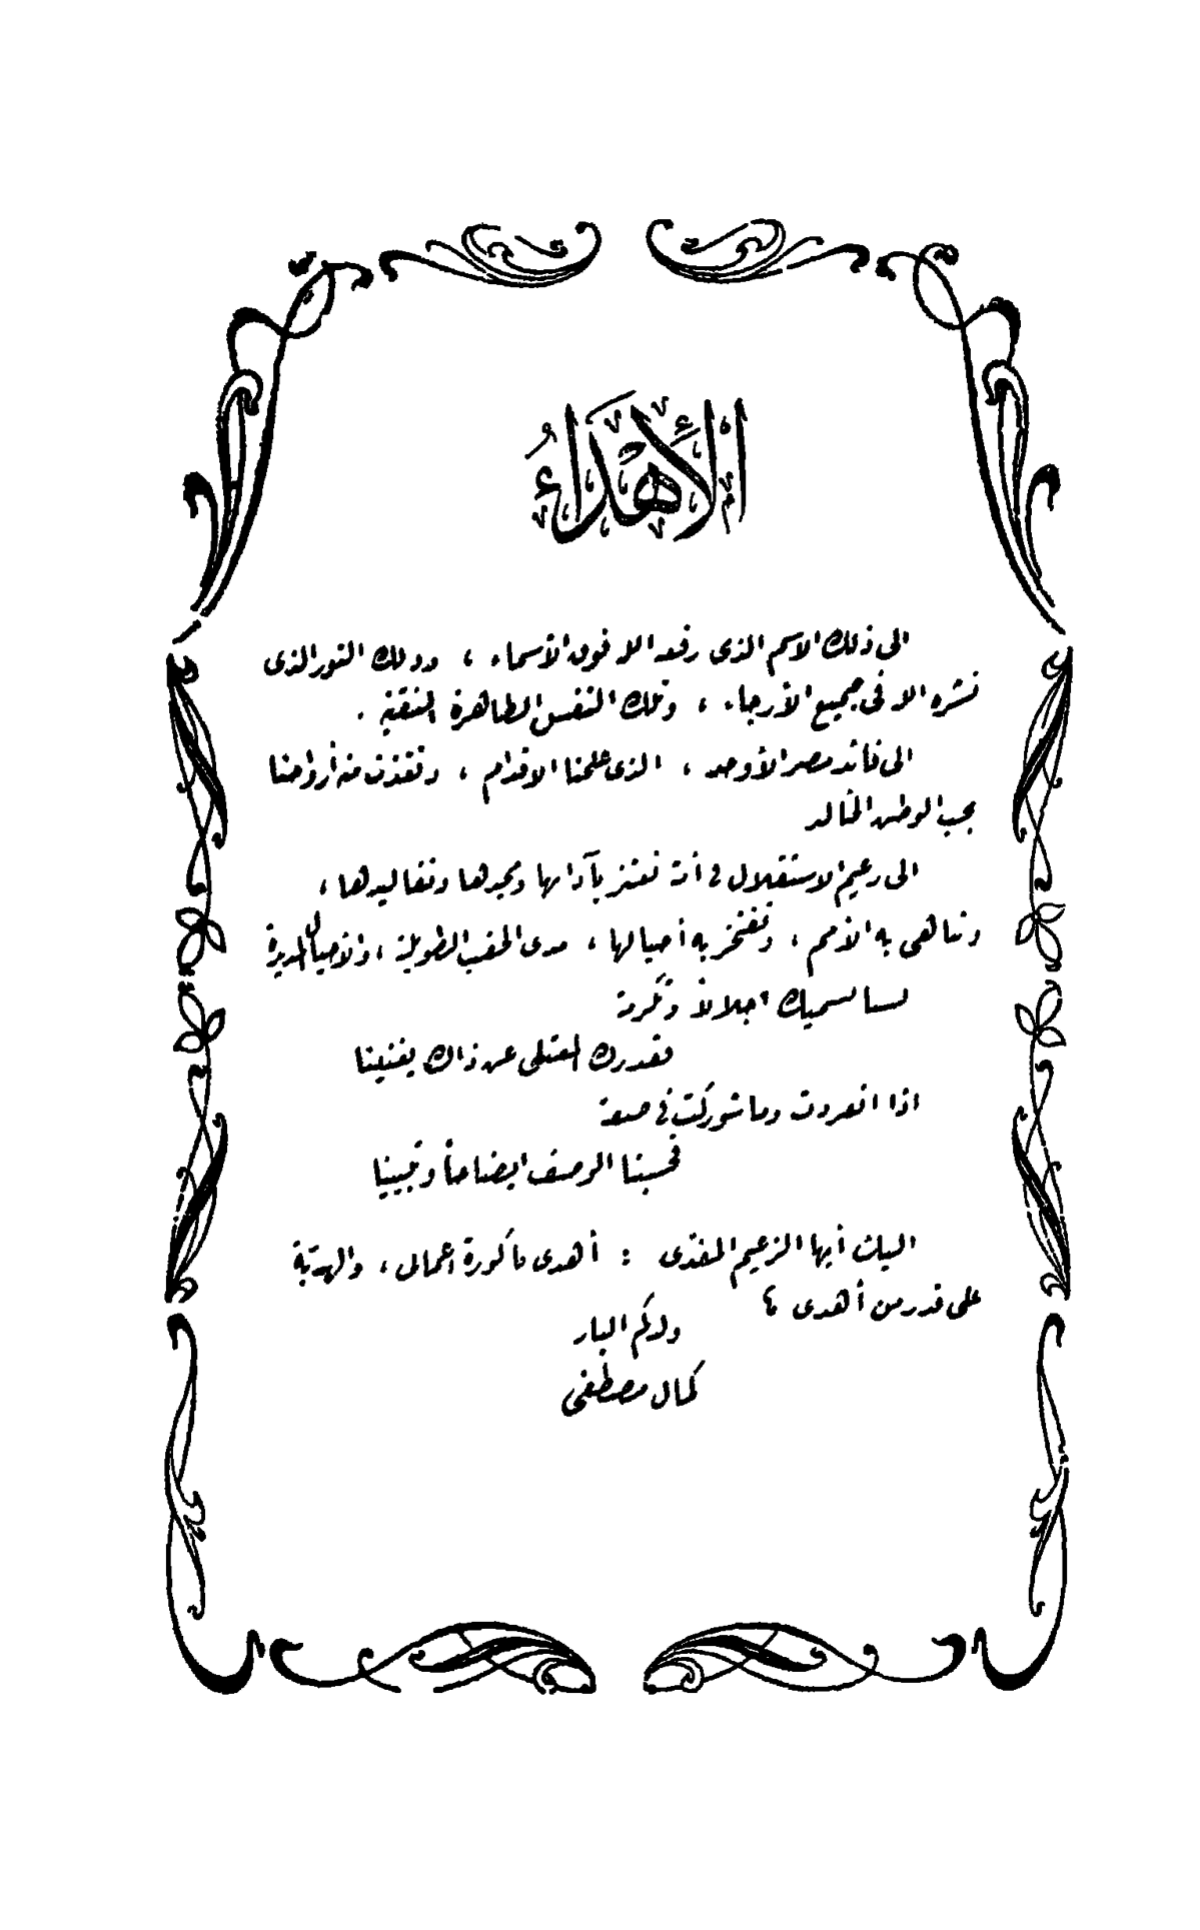 الأهداء
الى ذلك الاسم الذى رفعه الله فوق الأسماء ، وذلك النور الذى
نشره الله فى جميع الأرجاء ، وتلك النفس الطاهرة النقية .
الى قائد مصر الأوحد ، الذى علمنا الاقدام ، وتغذت منه أرواحنا
بحب الوطن الخالد
الى زعيم الاستقلال فى أمة تعتز بآدابها ومجدها وتقاليدها ،
وتباهى به الأمم ، وتفتخر به أجيالها ، مدى الحقب الطويلة ، والأجيال المديدة
لسنا نسميك اجلالاً وتكرمة
فقدرك المعتلى عن ذاك يغنينا
اذا انفردت وما شوركت فى صفة
فحسبنا الوصف ايضاحاً وتبيينا
اليك أيها الزعيم المفدّى : أهدى باكورة اعمالى ، والهدية
على قدر من أهدى ؟
ولدكم البار
كمال مصطفى